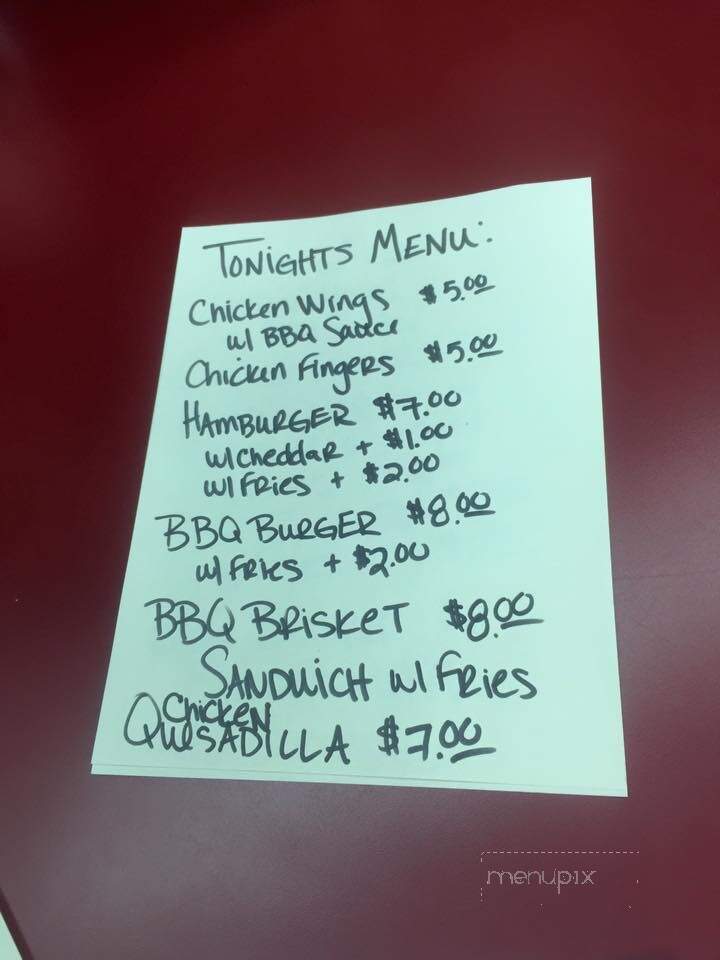 TONIGHTS MENU:
Chicken Wings $5.00
w/ BBQ Sauce
Chicken Fingers $5.00
HAMBURGER $7.00
w/ Cheddar + $1.00
w/ FRies + $2.00
BBQ BURGER $8.00
w/ FRies + $2.00
BBQ BRisKeT $8.00
SANDWICH w/ FRies
Chicken
QuesADILLA $7.00
menupix